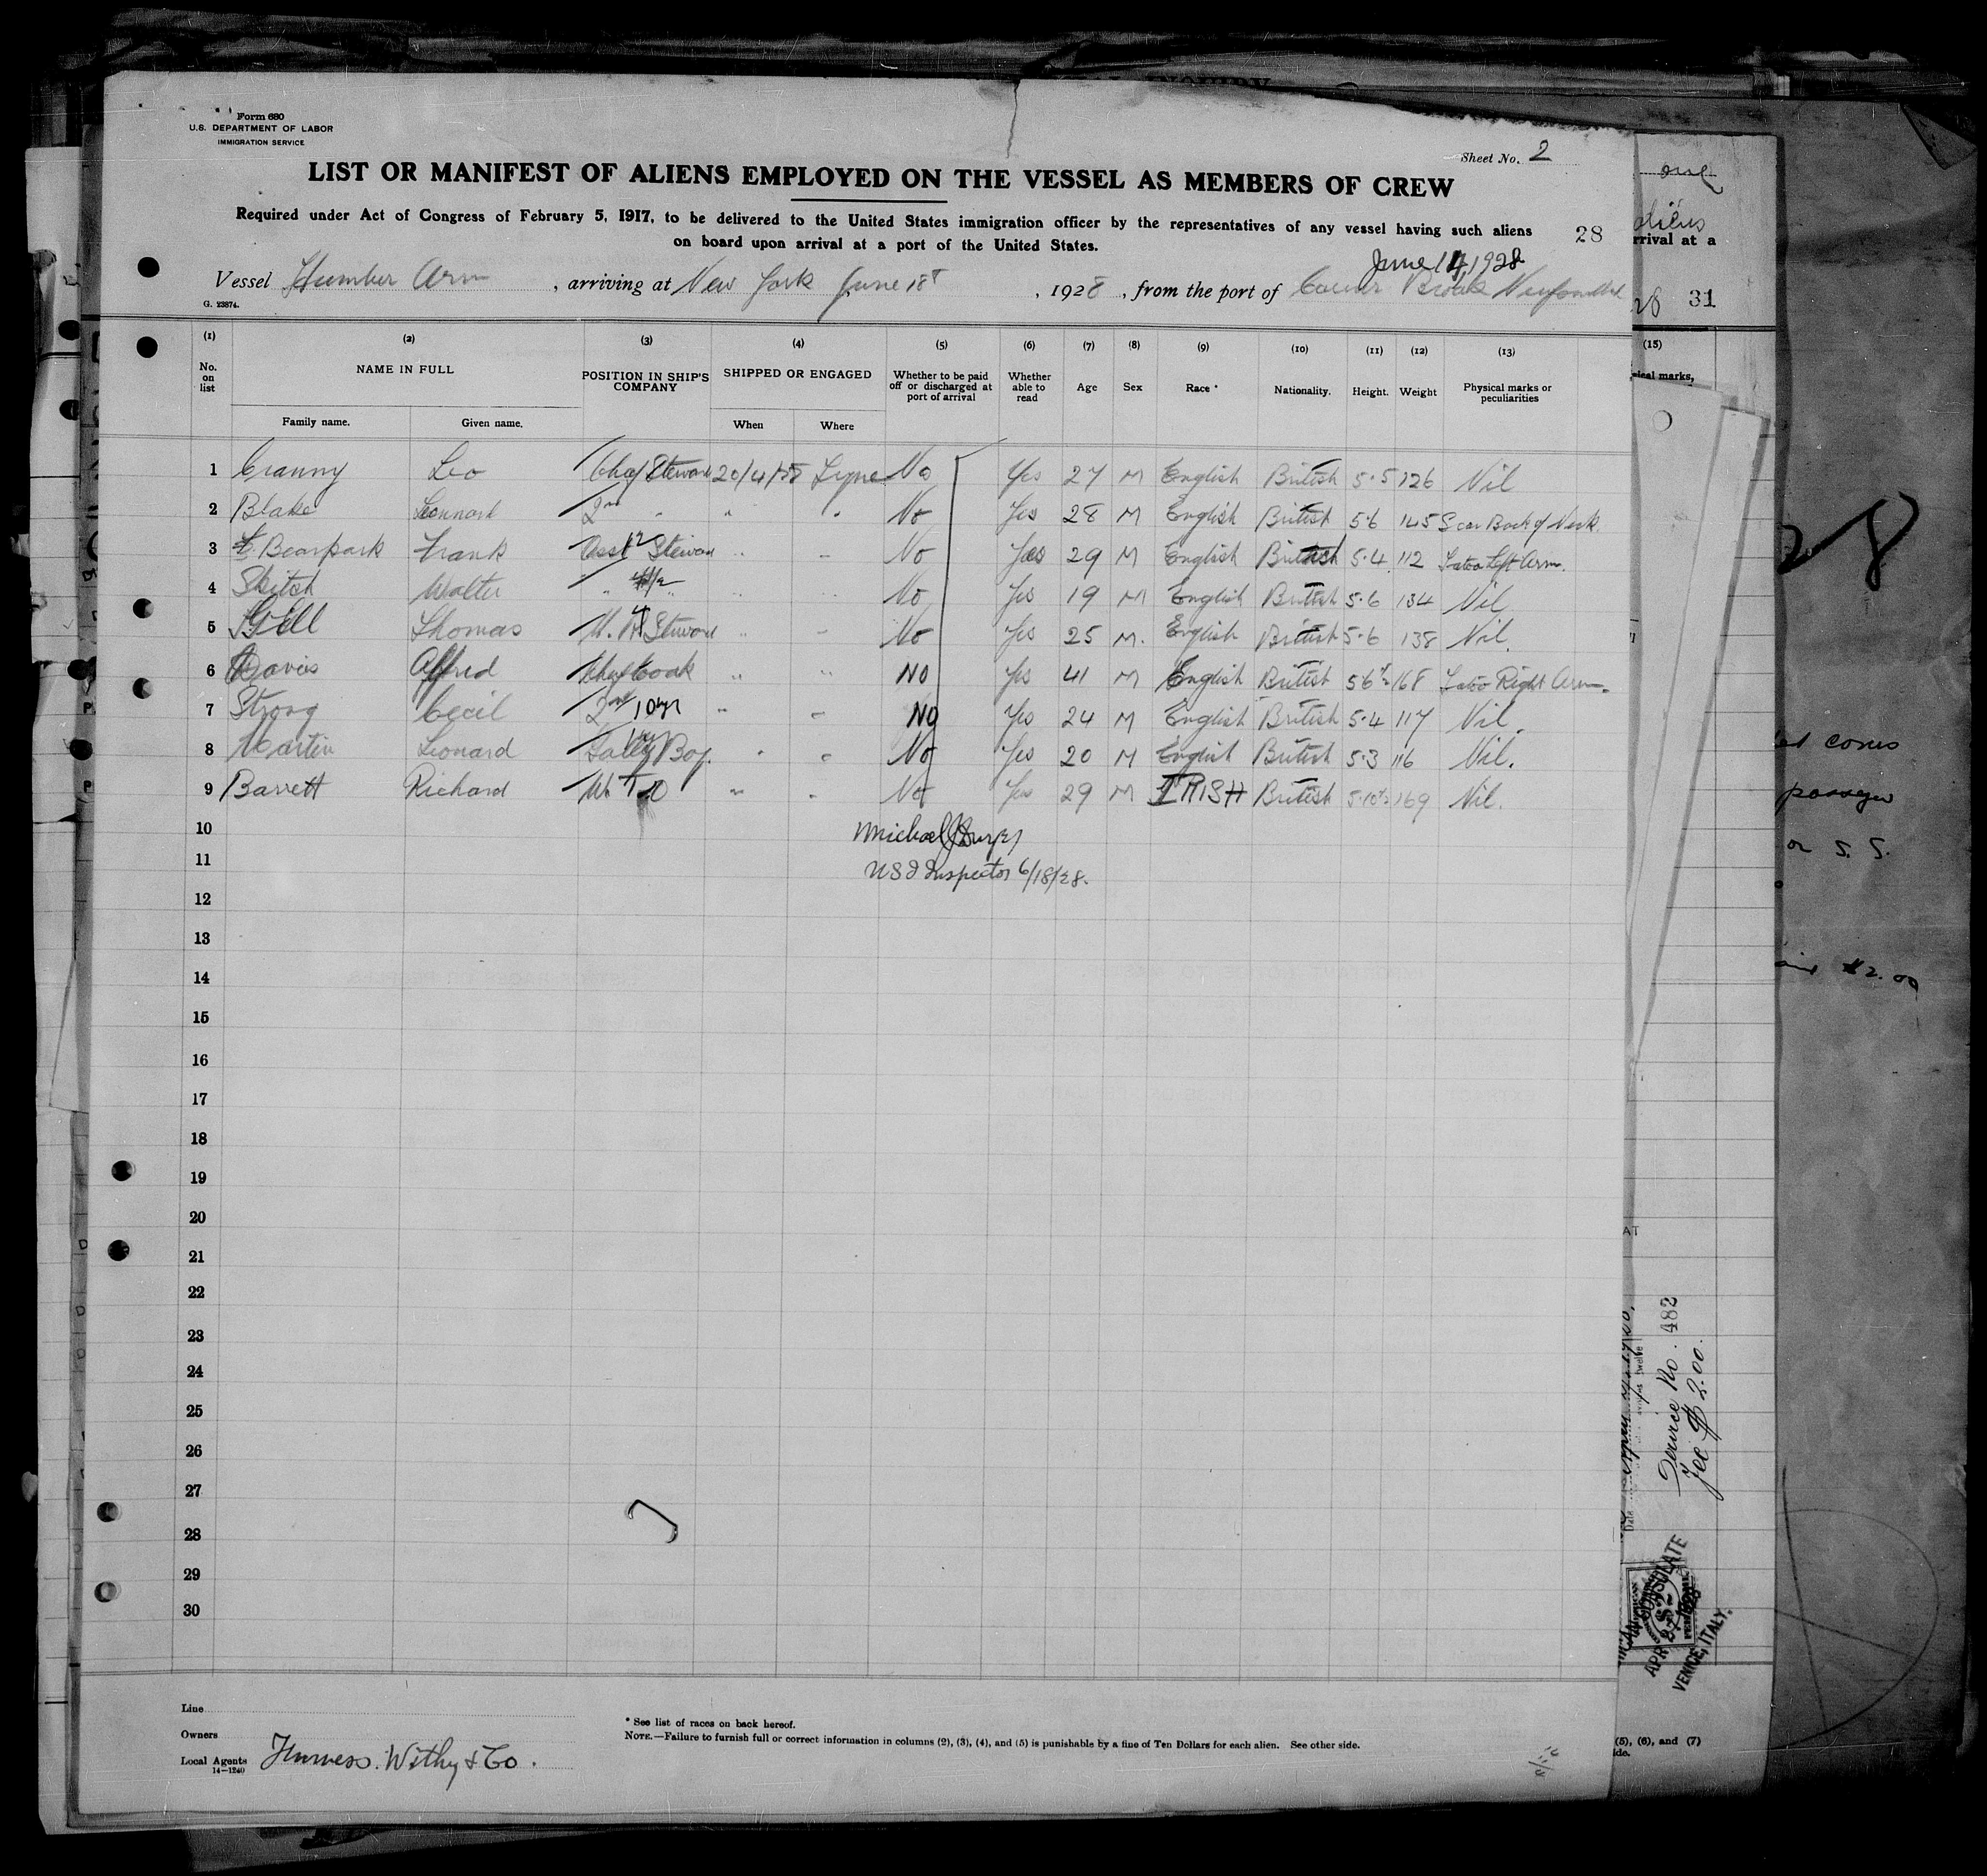 Form 680
U.S. DEPARTMENT OF LABOR
IMMIGRATION SERVICE
Sheet No. 2
LIST OR MANIFEST OF ALIENS EMPLOYED ON THE VESSEL AS MEMBERS OF CREW
Required under Act of Congress of February 5, 1917, to be delivered to the United States immigration officer by the representatives of any vessel having such aliens
on board upon arrival at a port of the United States.
28
June 14, 1928
Vessel Humber Arm, arriving at New York June 18th, 1928, from the port of Corner Brook
G. 23874.
(1) (2) (3) (4) (5) (6) (7) (8) (9) (10) (11) (12) (13)
No. on list NAME IN FULL POSITION IN SHIP'S COMPANY SHIPPED OR ENGAGED Whether to be paid off or discharged at port of arrival Whether able to read Age Sex Race * Nationality. Height. Weight Physical marks or peculiarities
Family name. Given name. When Where
1 Cranny Leo Chef Steward 20/4/28 Tyne No Yes 27 M English British 5.5 126 Nil
2 Blake Leonard 2nd " " " No Yes 28 M English British 5.6 145 Scar Back of Neck
3 Bearpark Frank Asst Steward " " No Yes 29 M English British 5.4 112 Tatoo Left Arm.
4 Skitch Walter " " " " No Yes 19 M English British 5.6 134 Nil
5 Gell Thomas M. R. Steward " " No Yes 25 M. English British 5.6 138 Nil.
6 Davis Alfred Chef Cook " " No Yes 41 M English British 168 Tatoo Right Arm.
7 Strong Cecil 2nd 10 yr " " No Yes 24 M English British 5.4 117 Nil.
8 Martin Leonard Boy. " " No Yes 20 M English British 5.3 116 Nil.
9 Barrett Richard W. T. O " " No Yes 29 M IRISH British 169 Nil.
10 Michael J
11 USI Inspector 6/18/28.
12
13
14
15
16
17
18
19
20
21
22
23
24
25
26
27
28
29
30
Line
Owners
Local Agents Furness. Withy & Co.
14—1240
* See list of races on back hereof.
NOTE.—Failure to furnish full or correct information in columns (2), (3), (4), and (5) is punishable by a fine of Ten Dollars for each alien. See other side.
one
rrival at a
28 31
(15)
28
passage
or S. S.
$2.00
Service No. 482
Fee $ 2.00.
CONSULATE
APR
VENICE, ITALY.
(5), (6), and (7)